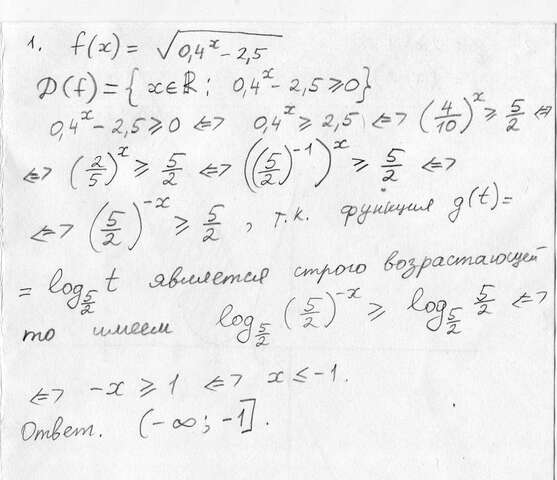 1. f(x) = √(0,4^x − 2,5)
D(f) = {x ∈ ℝ : 0,4^x − 2,5 ⩾ 0}
0,4^x − 2,5 ⩾ 0 <=> 0,4^x ⩾ 2,5 <=> (4/10)^x ⩾ 5/2 <=>
<=> (2/5)^x ⩾ 5/2 <=> ((5/2)^−1)^x ⩾ 5/2 <=>
<=> (5/2)^−x ⩾ 5/2, т.к. функция g(t) =
= log_5/2 t является строго возрастающей
то имеем log_5/2 (5/2)^−x ⩾ log_5/2 5/2 <=>
<=> −x ⩾ 1 <=> x ≤ −1.
Ответ. (−∞; −1].